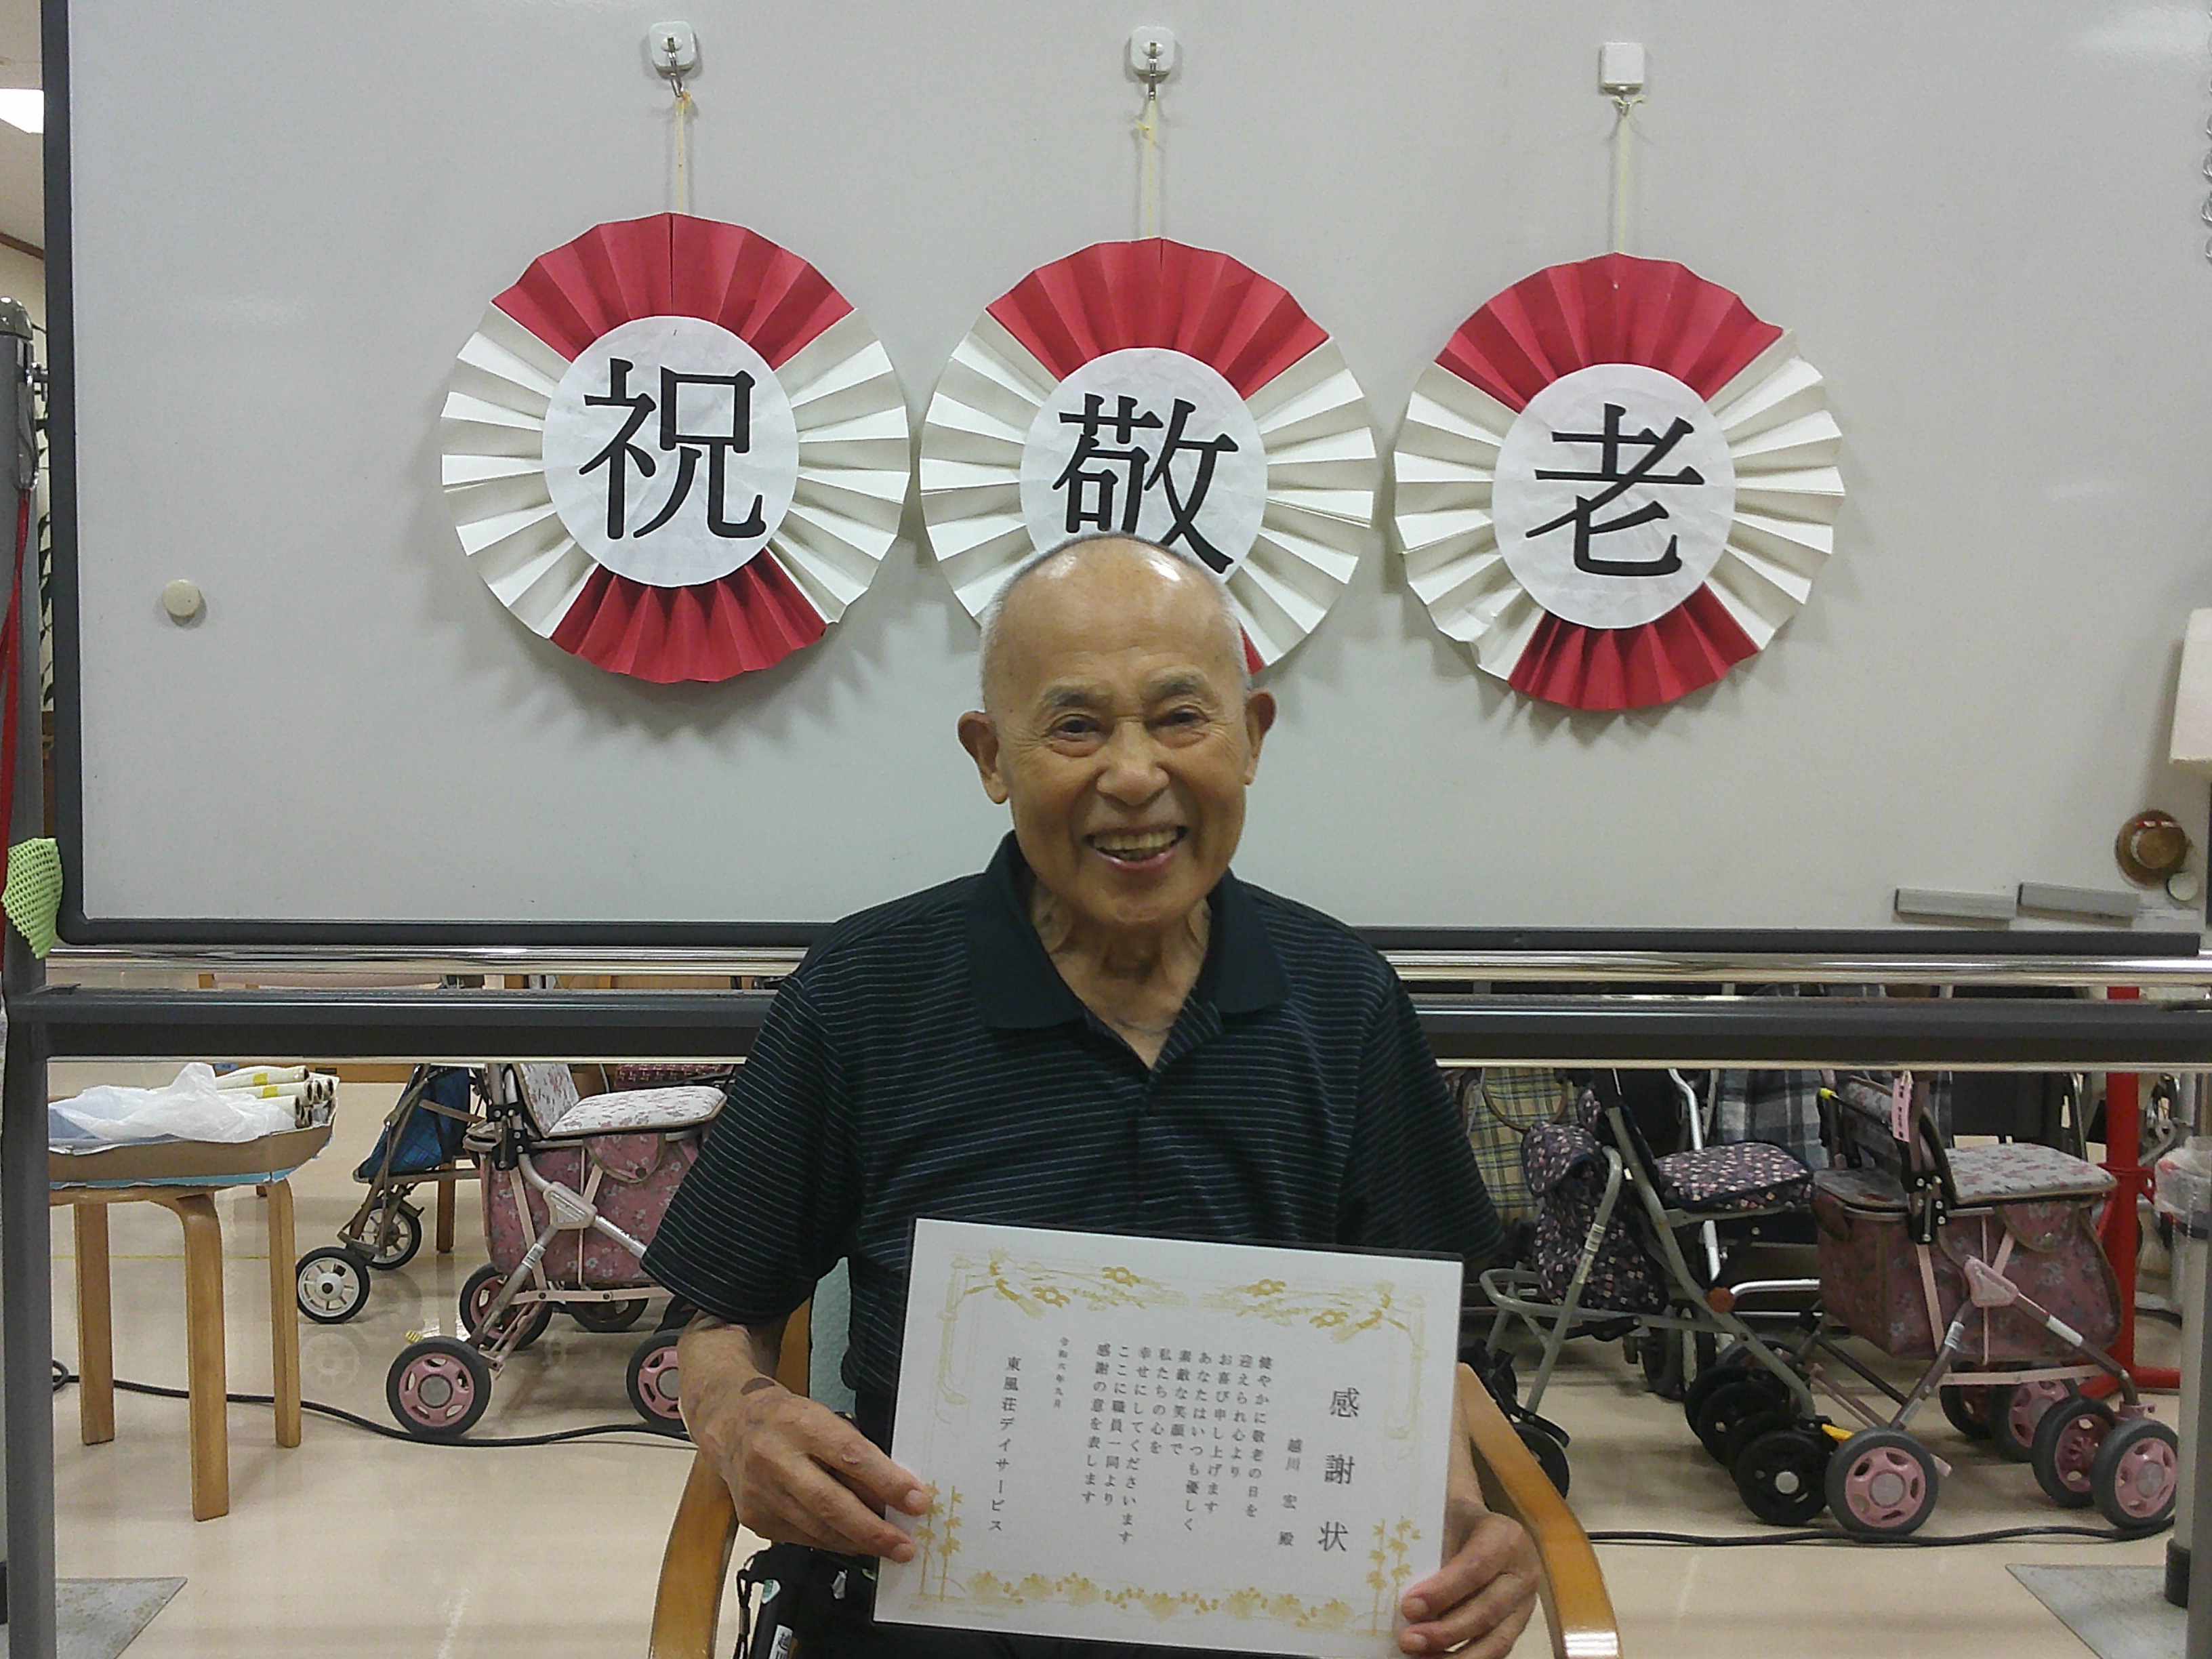 祝敬老
感謝状
越川 宏 殿
健やかに敬老の日を
迎えられ心より
お喜び申し上げます
あなたはいつも優しく
素敵な笑顔で
私たちの心を
幸せにしてくださいます
ここに職員一同より
感謝の意を表します
令和六年九月
東風荘デイサービス